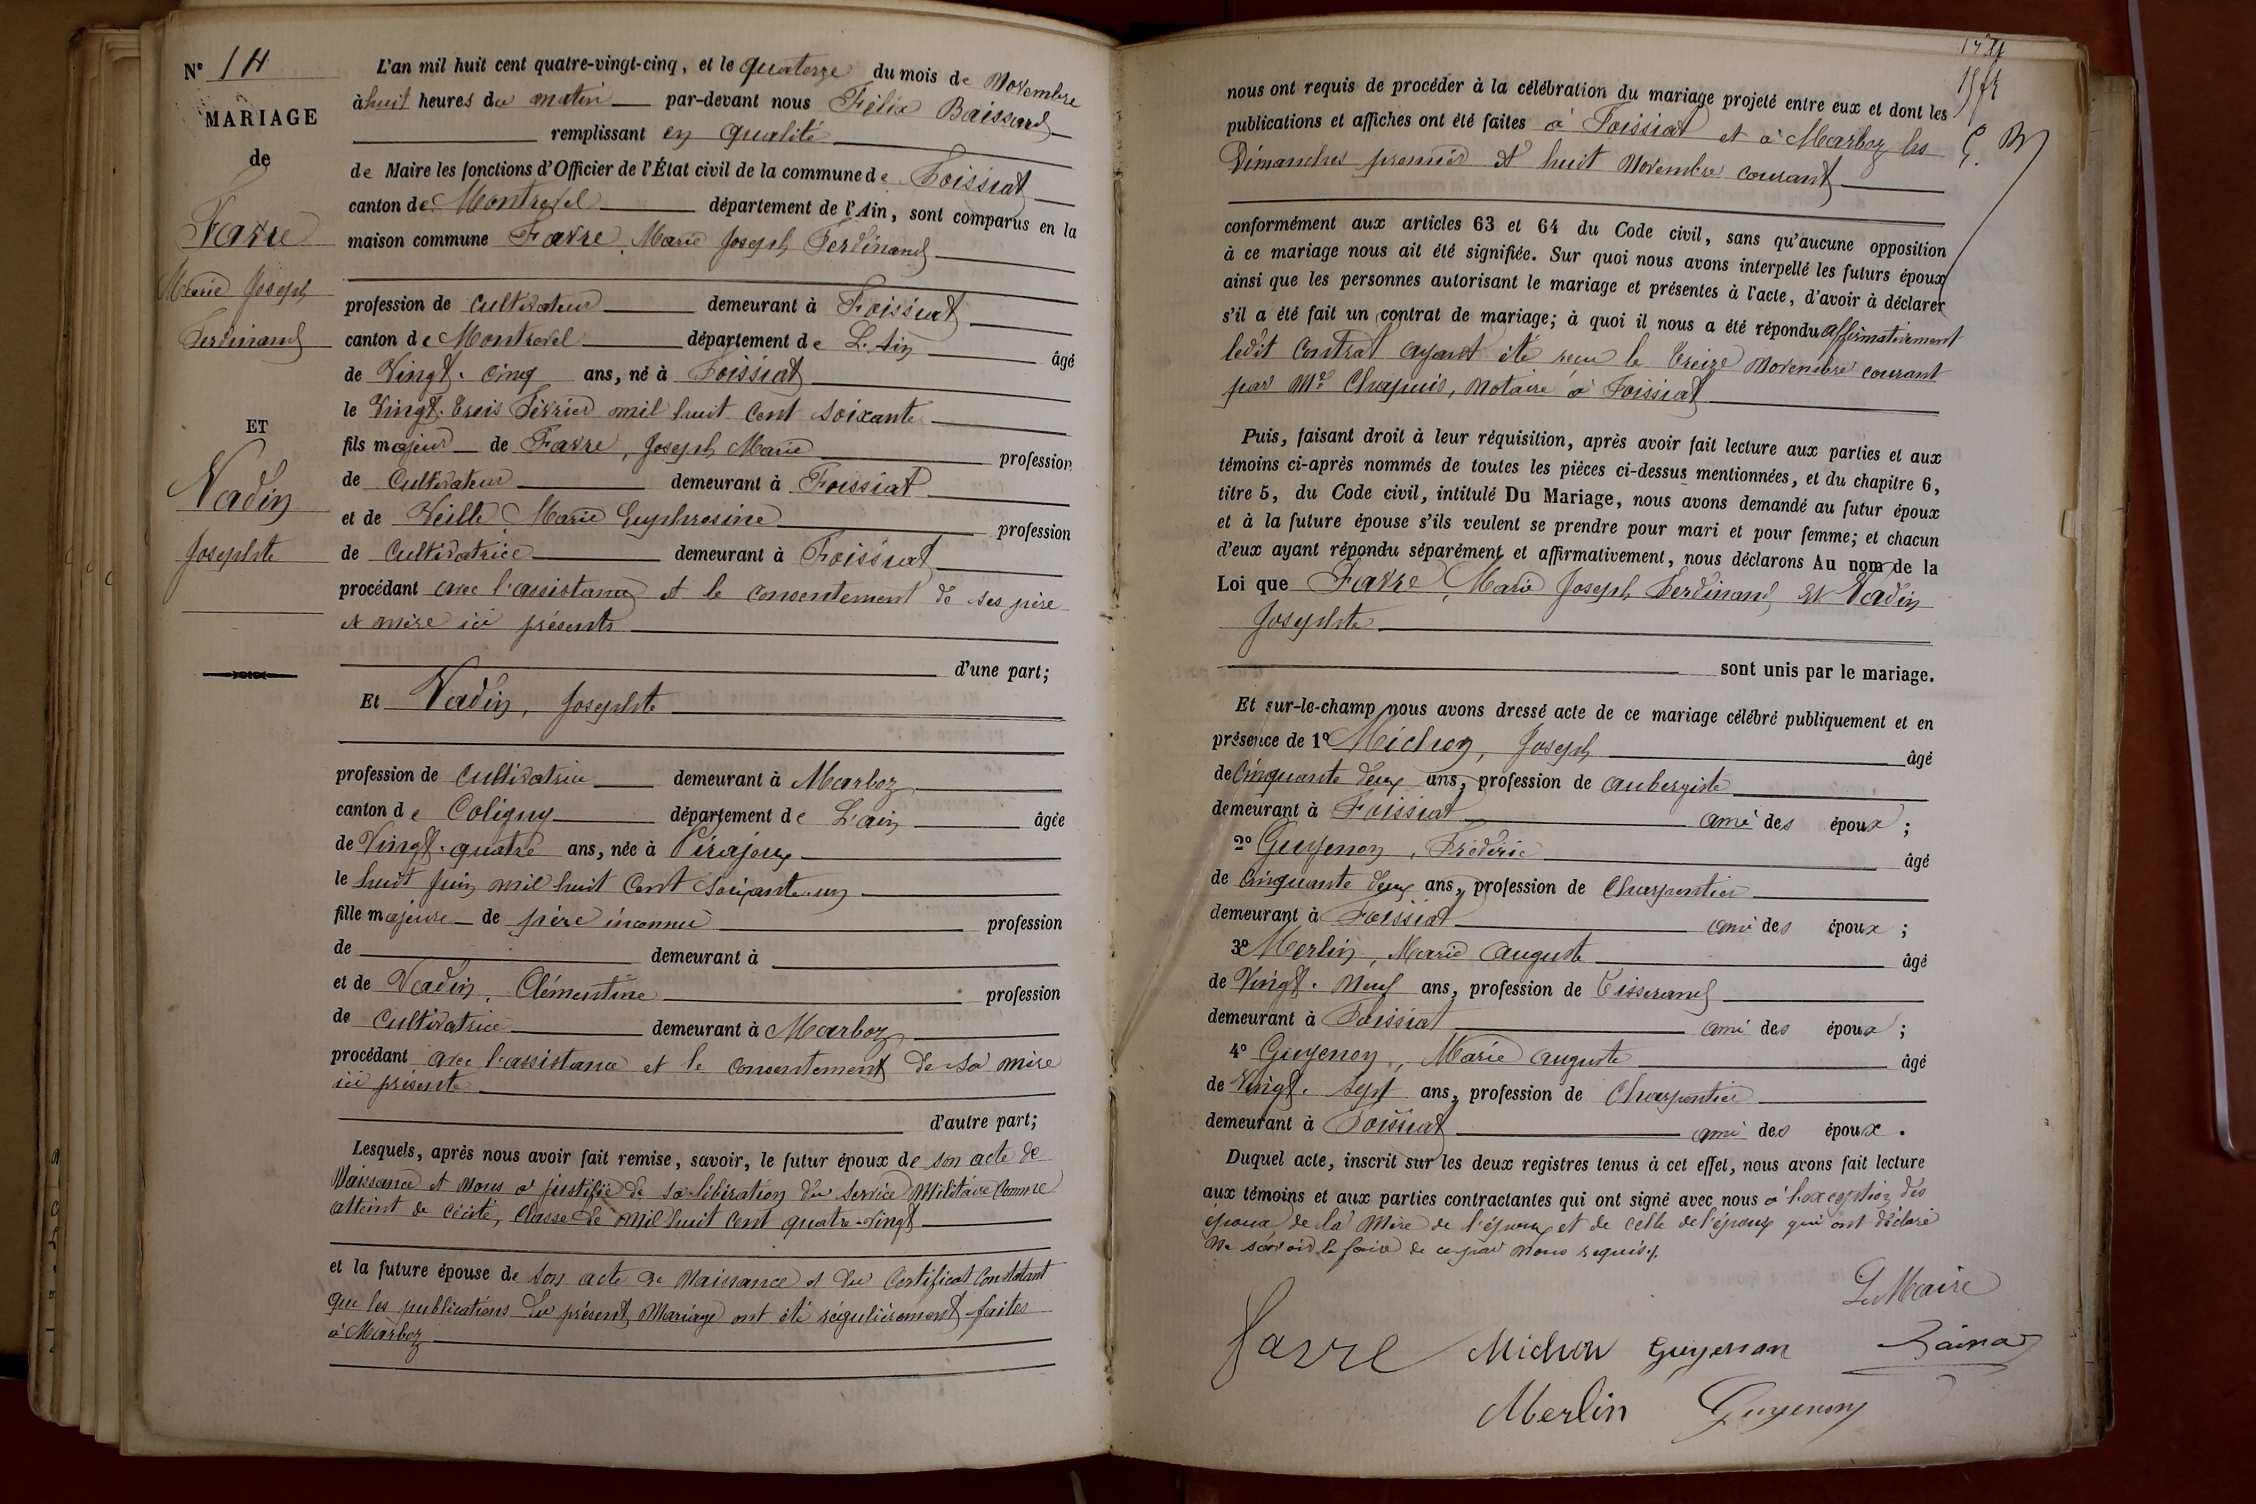 N° 14
MARIAGE
de
Favre
Marie Joseph
Ferdinand
ET
Vadin
Josephte
L'an mil huit cent quatre-vingt-cinq, et le quatorze du mois de Novembre
à huit heures du matin par-devant nous Félix Baissard
remplissant en qualité
de Maire les fonctions d'Officier de l'État civil de la commune de Foissiat
canton de Montrevel département de l'Ain, sont comparus en la
maison commune Favre, Marie Joseph Ferdinand
profession de cultivateur demeurant à Foissiat
canton de Montrevel département de L'Ain âgé
de Vingt-cinq ans, né à Foissiat
le Vingt-trois Février mil huit cent soixante
fils majeur de Favre, Joseph Marie profession
de Cultivateur demeurant à Foissiat
et de Veille Marie Euphrosine profession
de Cultivatrice demeurant à Foissiat
procédant avec l'assistance et le consentement de ses père
et mère ici présents
d'une part;
Et Vadin, Josephte
profession de Cultivatrice demeurant à Marboz
canton de Coligny département de L'ain âgée
de Vingt-quatre ans, née à Pirajoux
le huit juin mil huit cent soixante-un
fille majeure de père inconnu profession
de demeurant à
et de Vadin, Clémentine profession
de Cultivatrice demeurant à Marboz
procédant avec l'assistance et le consentement de sa mère
ici présente
d'autre part;
Lesquels, après nous avoir fait remise, savoir, le futur époux de son acte de
Naissance et nous a justifié de sa libération du service Militaire comme
atteint de cécité, classe de mil huit cent quatre-vingt
et la future épouse de son acte de Naissance et du Certificat Constatant
que les publications du présent Mariage ont été régulièrement faites
à Marboz
nous ont requis de procéder à la célébration du mariage projeté entre eux et dont les
publications et affiches ont été faites à Foissiat et à Marboz les
Dimanches premier et huit Novembre courant
conformément aux articles 63 et 64 du Code civil, sans qu'aucune opposition
à ce mariage nous ait été signifiée. Sur quoi nous avons interpellé les futurs époux
ainsi que les personnes autorisant le mariage et présentes à l'acte, d'avoir à déclarer
s'il a été fait un contrat de mariage; à quoi il nous a été répondu affirmativement
ledit Contrat ayant été reçu le treize Novembre courant
par Me Chapuis, Notaire à Foissiat
Puis, faisant droit à leur réquisition, après avoir fait lecture aux parties et aux
témoins ci-après nommés de toutes les pièces ci-dessus mentionnées, et du chapitre 6,
titre 5, du Code civil, intitulé Du Mariage, nous avons demandé au futur époux
et à la future épouse s'ils veulent se prendre pour mari et pour femme; et chacun
d'eux ayant répondu séparément et affirmativement, nous déclarons Au nom de la
Loi que Favre, Marie Joseph Ferdinand et Vadin
Josephte
sont unis par le mariage.
Et sur-le-champ nous avons dressé acte de ce mariage célébré publiquement et en
présence de 1° Michon, Joseph âgé
de Cinquante deux ans, profession de aubergiste
demeurant à Foissiat ami des époux;
2° Guyenon, Frédéric âgé
de Cinquante deux ans, profession de Charpentier
demeurant à Foissiat ami des époux;
3° Merlin, Marie Auguste âgé
de Vingt-Neuf ans, profession de Tisserand
demeurant à Foissiat ami des époux;
4° Guyenon, Marie Auguste âgé
de Vingt-Sept ans, profession de Charpentier
demeurant à Foissiat ami des époux.
Duquel acte, inscrit sur les deux registres tenus à cet effet, nous avons fait lecture
aux témoins et aux parties contractantes qui ont signé avec nous à l'exception des
époux de la Mère de l'époux et de celle de l'épouse qui ont déclaré
Ne savoir le faire de ce par Nous requis.
Le Maire
Favre Michon Guyenon
Merlin Guyenon